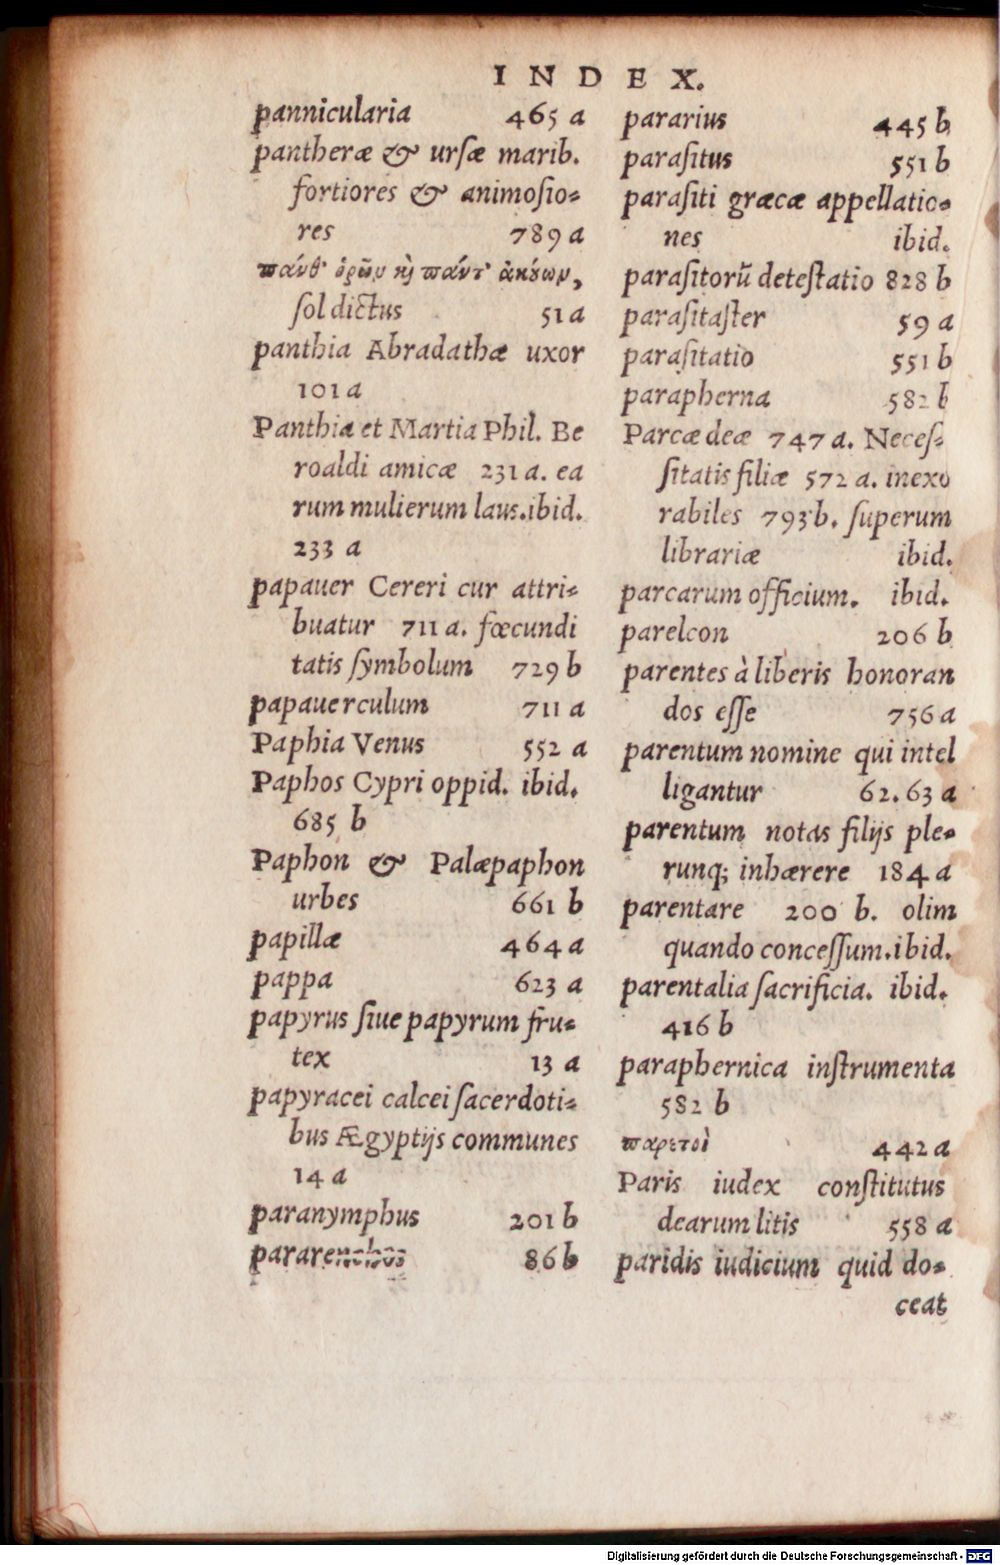 INDEX.
pannicularia 465 a
pantheræ & ursæ marib.
fortiores & animosio-
res 789 a
πάνθ' ὁρῶν κὶ πάντ' ἀκούων,
sol dictus 51 a
panthia Abradathæ uxor
101 a
Panthia et Martia Phil. Be
roaldi amicæ 231 a. ea
rum mulierum laus. ibid.
233 a
papauer Cereri cur attri-
buatur 711 a. fœcundi
tatis symbolum 729 b
papauerculum 711 a
Paphia Venus 552 a
Paphos Cypri oppid. ibid.
685 b
Paphon & Palæpaphon
urbes 661 b
papillæ 464 a
pappa 623 a
papyrus siue papyrum fru-
tex 13 a
papyracei calcei sacerdoti-
bus Ægyptijs communes
14 a
paranymphus 201 b
86 b
pararius 445 b
parasitus 551 b
parasiti græcæ appellatio-
nes ibid.
parasitorũ detestatio 828 b
parasitaster 59 a
parasitatio 551 b
parapherna 582 b
Parcæ deæ 747 a. Neces-
sitatis filiæ 572 a. inexo
rabiles 793 b. superum
librariæ ibid.
parcarum officium. ibid.
parelcon 206 b
parentes à liberis honoran
dos esse 756 a
parentum nomine qui intel
ligantur 62. 63 a
parentum notas filijs ple-
runq; inhærere 184 a
parentare 200 b. olim
quando concessum. ibid.
parentalia sacrificia. ibid.
416 b
paraphernica instrumenta
582 b
παρετοὶ 442 a
Paris iudex constitutus
dearum litis 558 a
paridis iudicium quid do-
ceat
Digitalisierung gefördert durch die Deutsche Forschungsgemeinschaft - DFG